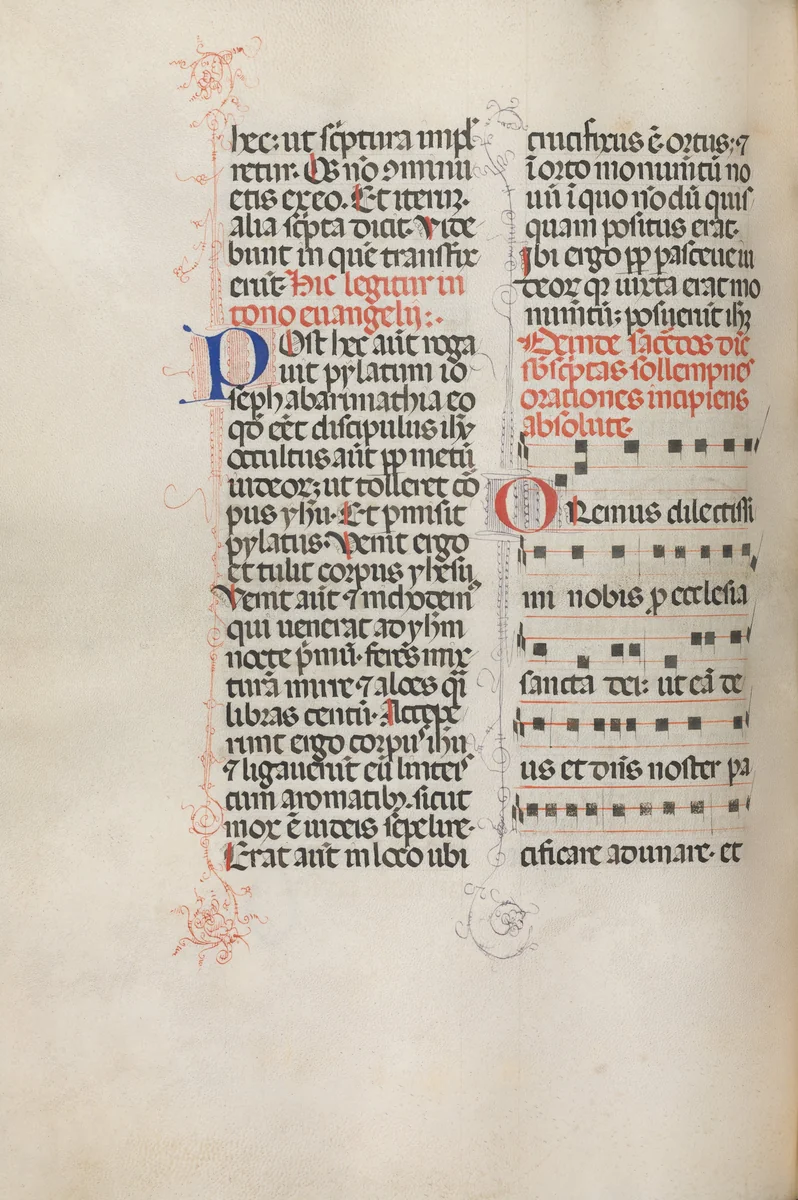 hec: ut sc̄ptura impl
retur. Os nō ꝯminu
etis ex eo. Et iterū.
alia sc̄pta dicit. Vide
bunt in quē transfix
erūt. Hic legitur in
tono euangelij:.
POst hec aūt roga
uit pylatum io
seph ab arimathia eo
qd̄ eēt discipulus ihū
occultus aūt ꝓp metū
iudeoꝝ; ut tolleret co
pus yhū. Et p̄misit
pylatus. Venit ergo
et tulit corpus yhesu.
Venit aūt ⁊ nichodem̄
qui uenerat ad yhm̄
nocte p̄mū. ferēs mix
turā mirre ⁊ aloes q̄i
libras centū. Accepe
runt ergo corpus ihū
⁊ ligauerūt eū lintei͛
cum aromatibꝫ. sicut
mox ē iudeis sepelire.
Erat aūt in loco ubi
crucifixus ē. ortus; ⁊
ī orto monumētū no
uū ī quo nōdū quis
quam positus erat.
Ibi ergo ꝓp pasceueuu
deoꝝ qꝛ iuxta erat mo
numētū; posuerūt ihꝫ
Deinde sac̄dos dic̄
sb̄sc̄ptas sollempnes
orationes incipiens
absolute.
ORemus dilectissi
mi nobis ꝓ ecclesia
sancta dei: ut eā de
us et dn̄s noster pa
cificare adunare. et